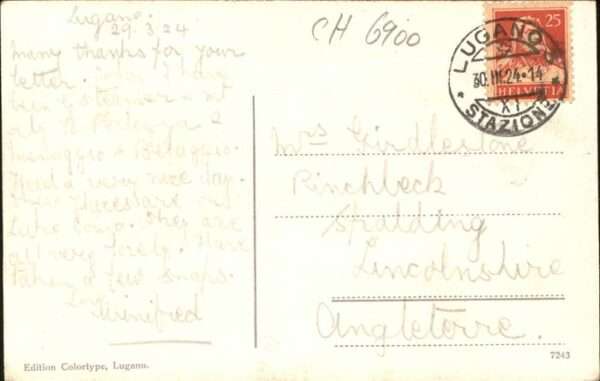 Lugano.
29.3.24
many thanks for your
letter. Today I have
been by steamer
to Porlezza &
menaggio & Bellaggio.
Had a very nice day.
These places are on
Lake Como. They are
all very lovely. Have
taken a few snaps.
Love
Winifred
Edition Colortype, Lugano.
CH 6900
25
HELVETIA
LUGANO 3
30.III.24.14
XI
STAZIONE
Mrs Girdlestone
Pinchbeck
Spalding
Lincolnshire
Angleterre.
7243